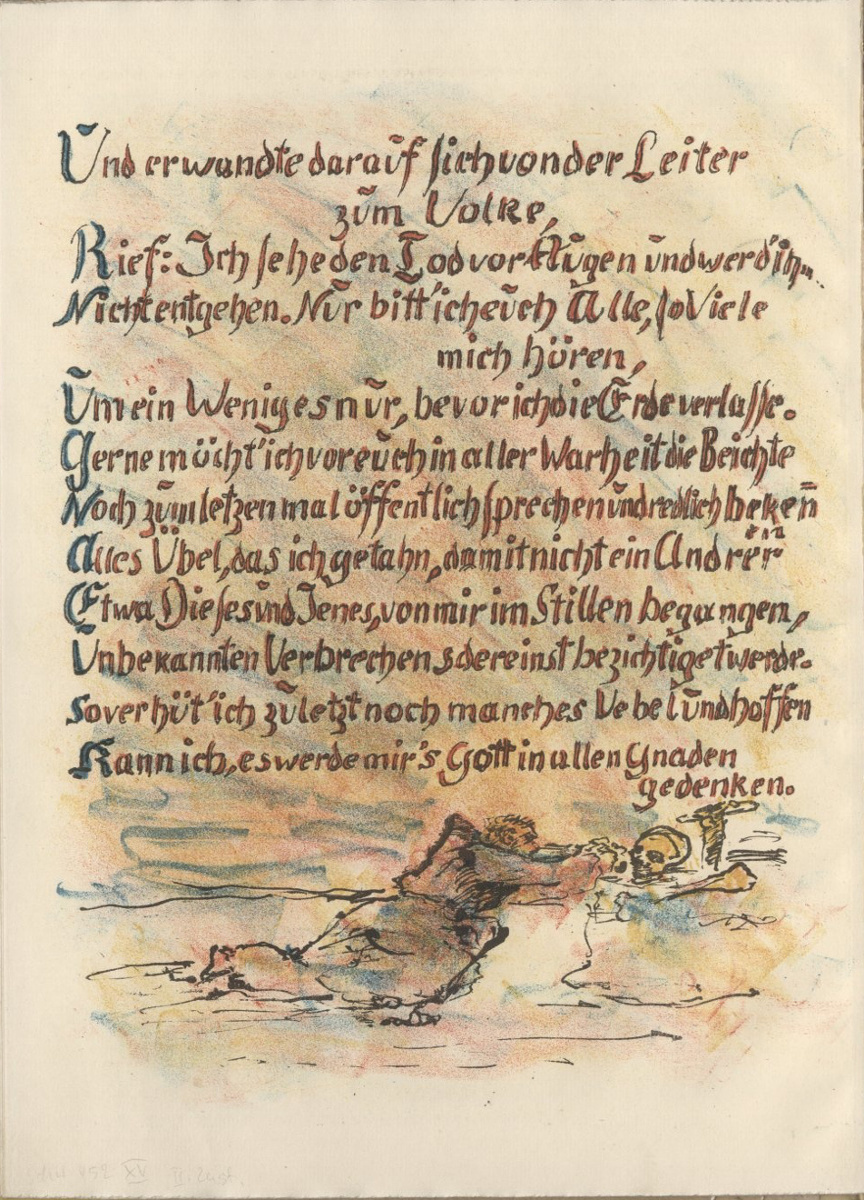 Und er wandte darauf sich von der Leiter
zum Volke,
Rief: Ich sehe den Tod vor Augen und werd' ihn
Nicht entgehen. Nur bitt' ich euch Alle, so Viele
mich hören,
Um ein Weniges nur, bevor ich die Erde verlasse.
Gerne möcht' ich vor euch in aller Warheit die Beichte
Noch zum letzen mal öffentlich sprechen und redlich beken̄
Alles Übel, das ich getahn, damit nicht ein Andrer
Etwa Dieses und Jenes, von mir im Stillen begangen,
Unbekannten Verbrechens dereinst bezichtiget werde.
So verhüt' ich zuletzt noch manches Uebel und hoffen
Kann ich, es werde mir's Gott in allen Gnaden
gedenken.
XV